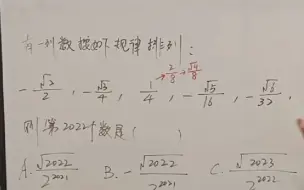 有一列数按如下规律排列:
→ 2/8 → √4/8
-√2/2, -√3/4, 1/4, -√5/16, -√6/32,
则第2022个数是( )
A. √2022/2^2021 B. -√2022/2^2022 C. √2023/2^2022